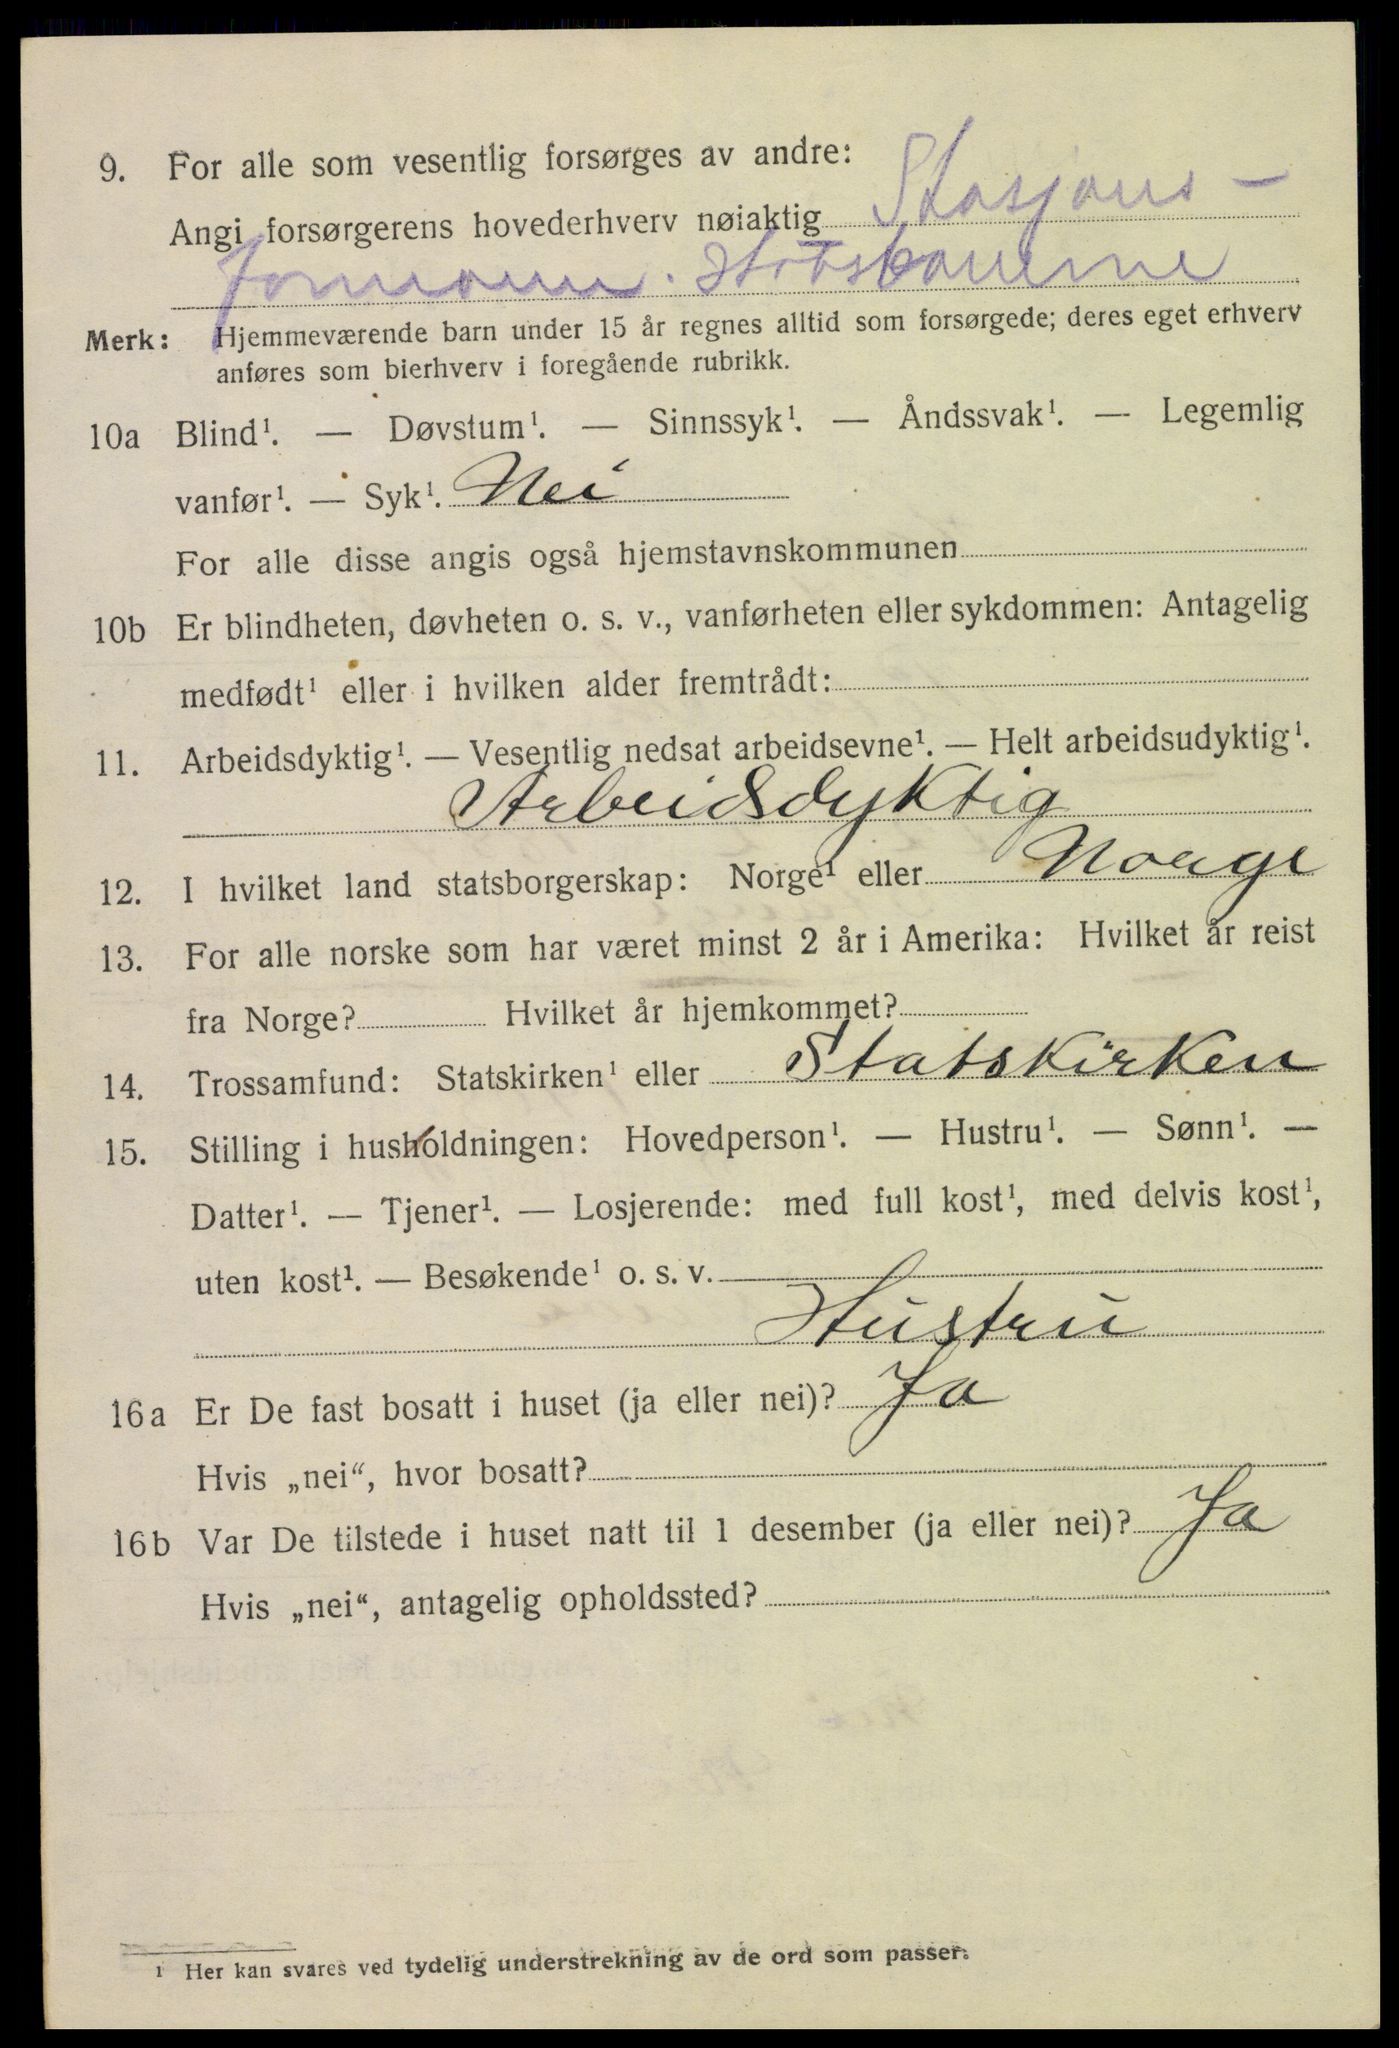 9. For alle som vesentlig forsørges av andre:
Angi forsørgerens hovederhverv nøiaktig Stasjons-
formann. Statsbanerne
Merk: Hjemmeværende barn under 15 år regnes alltid som forsørgede; deres eget erhverv
anføres som bierhverv i foregående rubrikk.
10a Blind¹. — Døvstum¹. — Sinnssyk¹. — Åndssvak¹. — Legemlig
vanfør¹. — Syk¹. Nei
For alle disse angis også hjemstavnskommunen
10b Er blindheten, døvheten o. s. v., vanførheten eller sykdommen: Antagelig
medfødt¹ eller i hvilken alder fremtrådt:
11. Arbeidsdyktig¹. — Vesentlig nedsat arbeidsevne¹. — Helt arbeidsudyktig¹.
Arbeidsdyktig
12. I hvilket land statsborgerskap: Norge¹ eller Norge
13. For alle norske som har været minst 2 år i Amerika: Hvilket år reist
fra Norge? Hvilket år hjemkommet?
14. Trossamfund: Statskirken¹ eller Statskirken
15. Stilling i husholdningen: Hovedperson¹. — Hustru¹. — Sønn¹. —
Datter¹. — Tjener¹. — Losjerende: med full kost¹, med delvis kost¹,
uten kost¹. — Besøkende¹ o. s. v.
Hustru
16a Er De fast bosatt i huset (ja eller nei)? Ja
Hvis „nei“, hvor bosatt?
16b Var De tilstede i huset natt til 1 desember (ja eller nei)? Ja
Hvis „nei“, antagelig opholdssted?
¹ Her kan svares ved tydelig understrekning av de ord som passer.